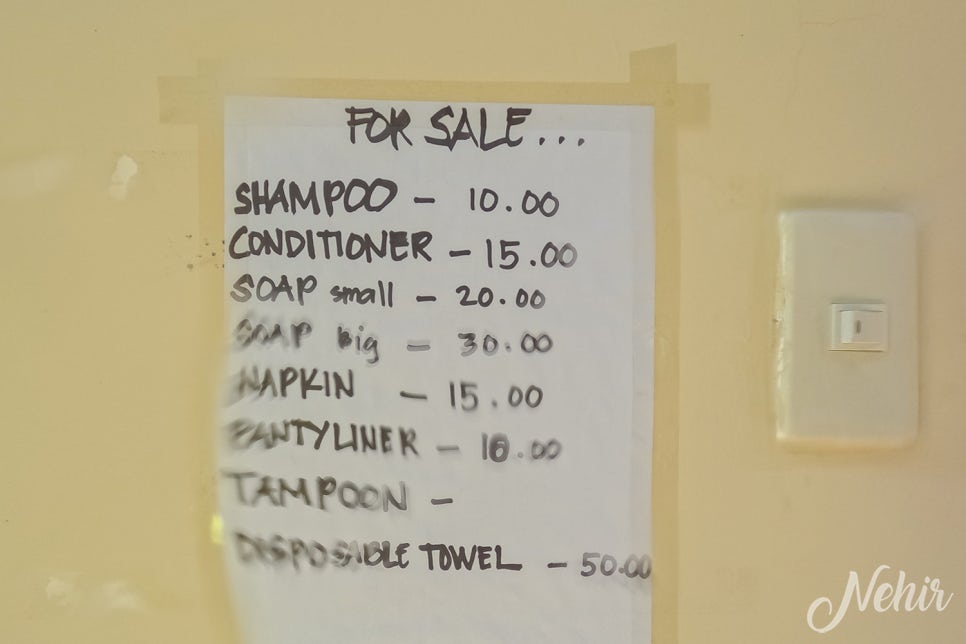 FOR SALE...
SHAMPOO - 10.00
CONDITIONER - 15.00
SOAP small - 20.00
SOAP big - 30.00
NAPKIN - 15.00
PANTYLINER - 10.00
TAMPOON -
DISPOSABLE TOWEL - 50.00
Nehir